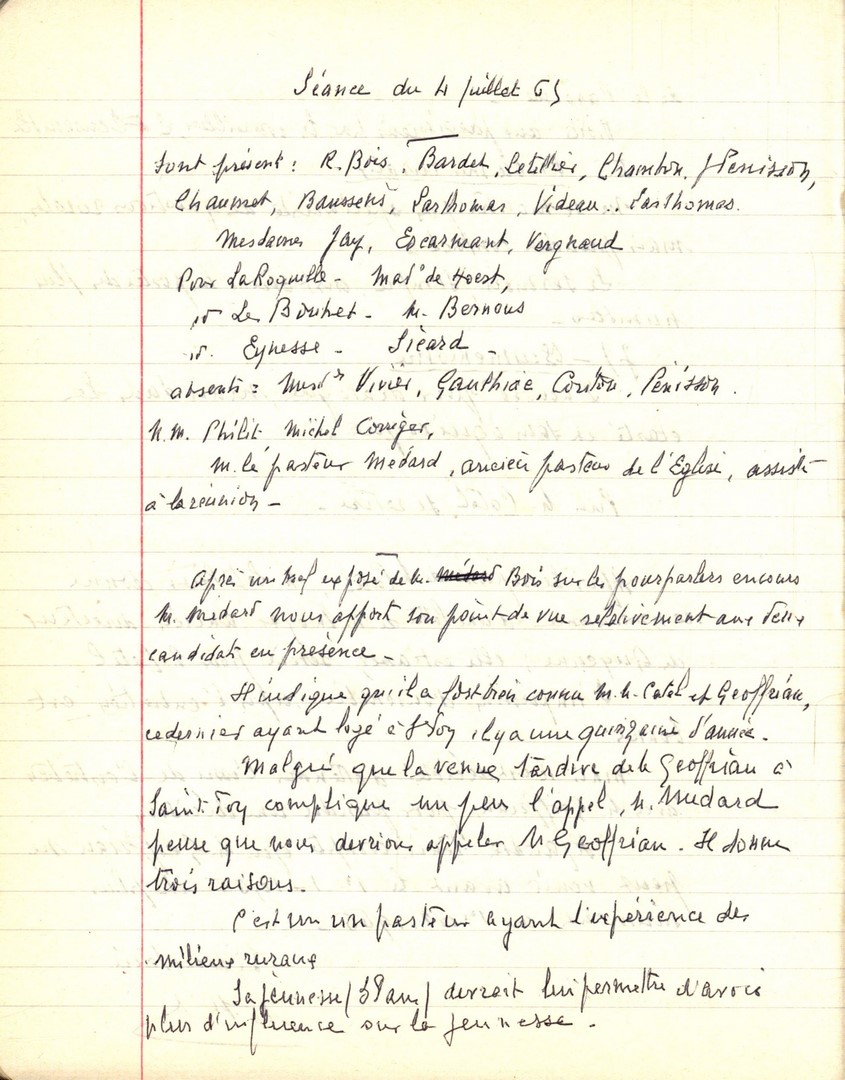 Séance du 4 juillet 65
Sont présent : R. Bois, Bardet, Letellier, Chambon, J Penisson,
Chaumet, Baussens, Sarthomas, Videau.. Sarthomas.
Mesdames Jay, Escarmant, Vergnaud
Pour La Roquille - Mad° de Hoest,
id Le Bouhet - M. Bernous
id. Eynesse - Sicard -
absents : Mesdes Vivier, Gauthiac, Couton, Penisson.
M.M. Philit Michel Corriger,
M. le pasteur Médard, ancien pasteur de l'Eglise, assiste
à la réunion -
Après un bref exposé de M. Médard Bois sur les pourparlers encours
M. Médard nous apporte son point de vue relativement aux deux
candidats en présence -
Il indique qu'il a fort bien connu M.M. Catel et Geoffrian,
cedernier ayant logé à Ste Foy il y a une quinzaine d'année.
Malgré que la venue tardive de M Geoffrian à
Sainte Foy complique un peu l'appel, M. Médard
pense que nous devrions appeler M Geoffrian. Il donne
trois raisons.
C'est un un pasteur ayant l'expérience des
milieux ruraux
Sa jeunesse (38 ans) devrait lui permettre d'avoir
plus d'influence sur la jeunesse.